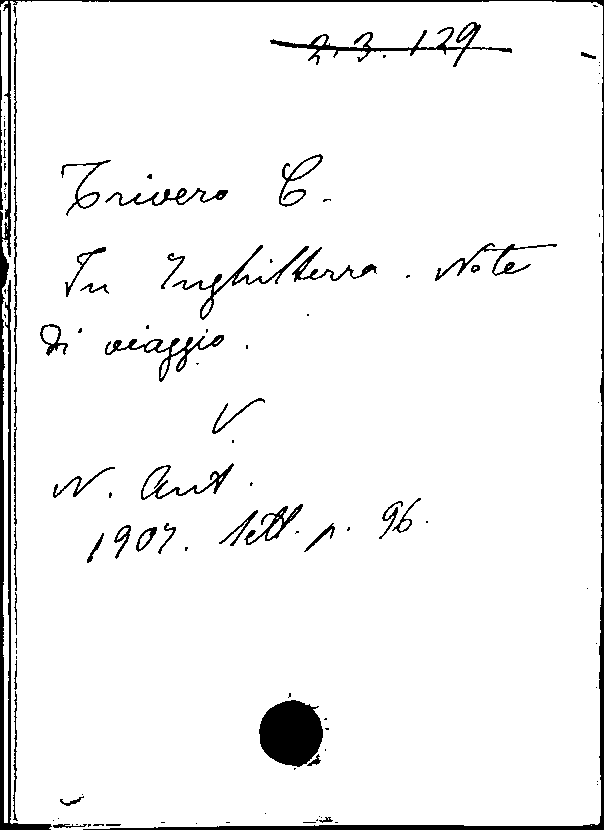 2.3.129
Trivero C.
In Inghilterra. Note
di viaggio.
V.
N. Ant.
1907. Sett. p. 96.